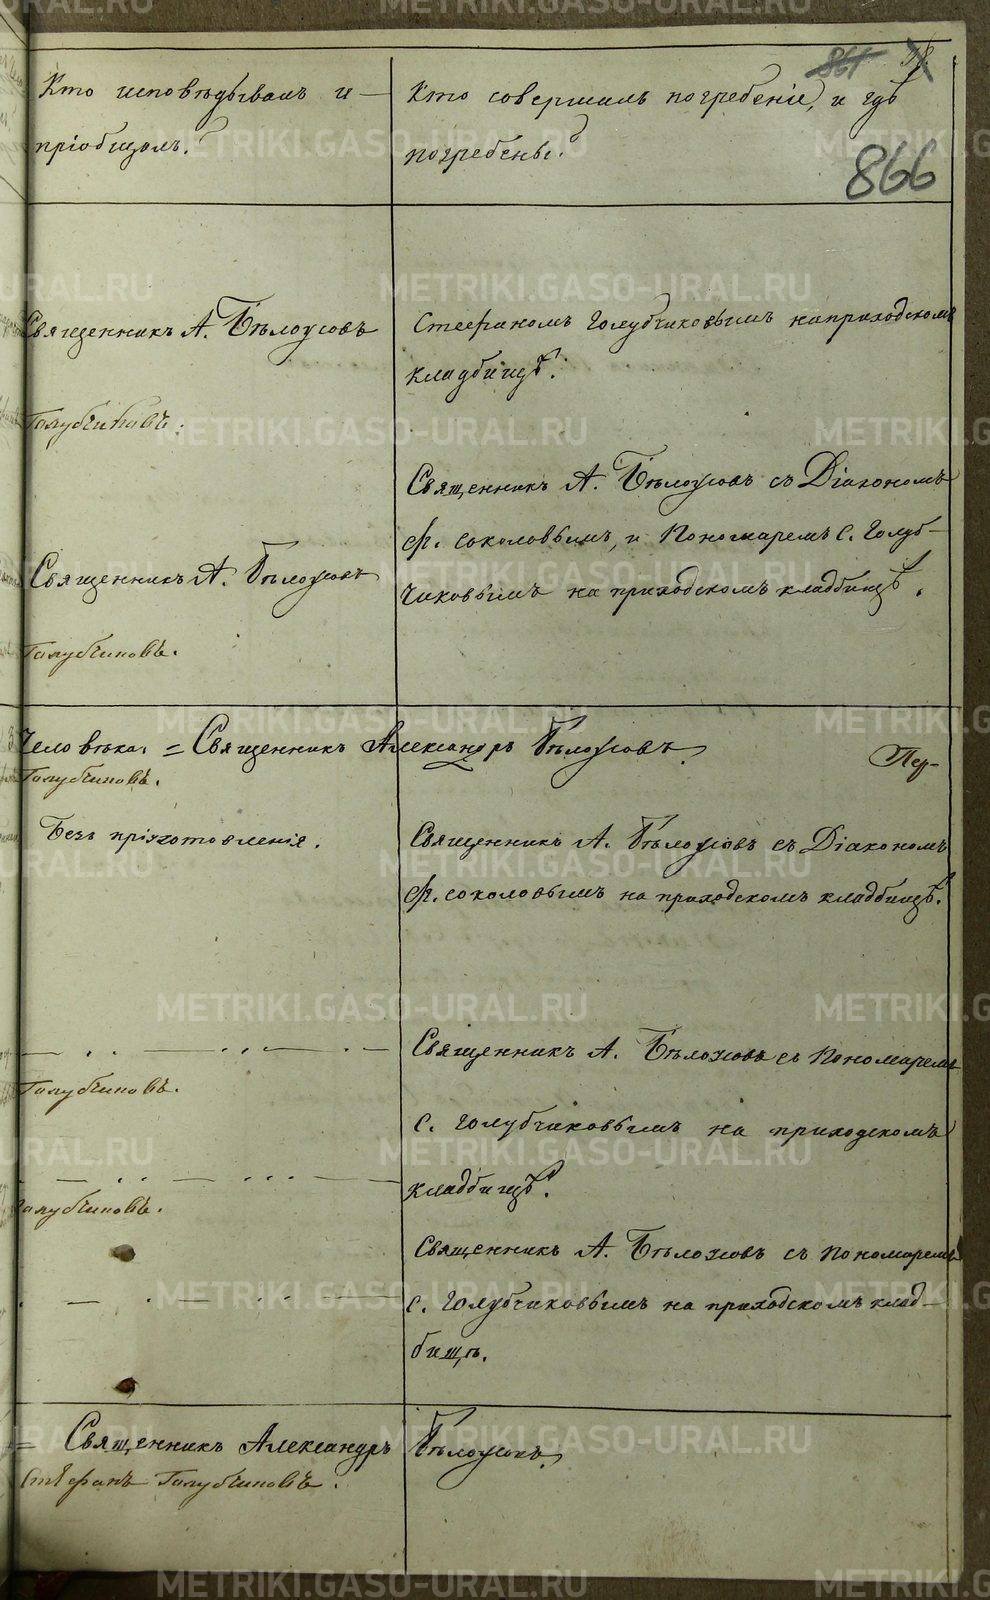 861
866
Кто исповѣдывалъ и
пріобщалъ?
Кто совершалъ погребеніе, и гдѣ
погребены?
Священникъ А. Бѣлоусовъ
Стефаномъ Голубчиковымъ на приходскомъ
кладбищѣ.
Голубчиковъ.
Священникъ А. Бѣлоусовъ съ Діакономъ
Ф. Соколовымъ, и Пономаремъ С. Голуб-
чиковымъ на приходскомъ кладбищѣ.
Священникъ А. Бѣлоусовъ
Голубчиковъ.
человѣка. = Священникъ Александръ Бѣлоусовъ.
Голубчиковъ.
Безъ пріуготовленія.
Священникъ А. Бѣлоусовъ съ Діакономъ
Ф. Соколовымъ на приходскомъ кладбищѣ.
Священникъ А. Бѣлоусовъ съ Пономаремъ
С. Голубчиковымъ на приходскомъ
кладбищѣ.
Голубчиковъ.
Голубчиковъ.
Священникъ А. Бѣлоусовъ съ Пономаремъ
С. Голубчиковымъ на приходскомъ клад-
бищѣ.
= Священникъ Александръ Бѣлоусовъ.
Стефанъ Голубчиковъ.
METRIKI.GASO-URAL.RU